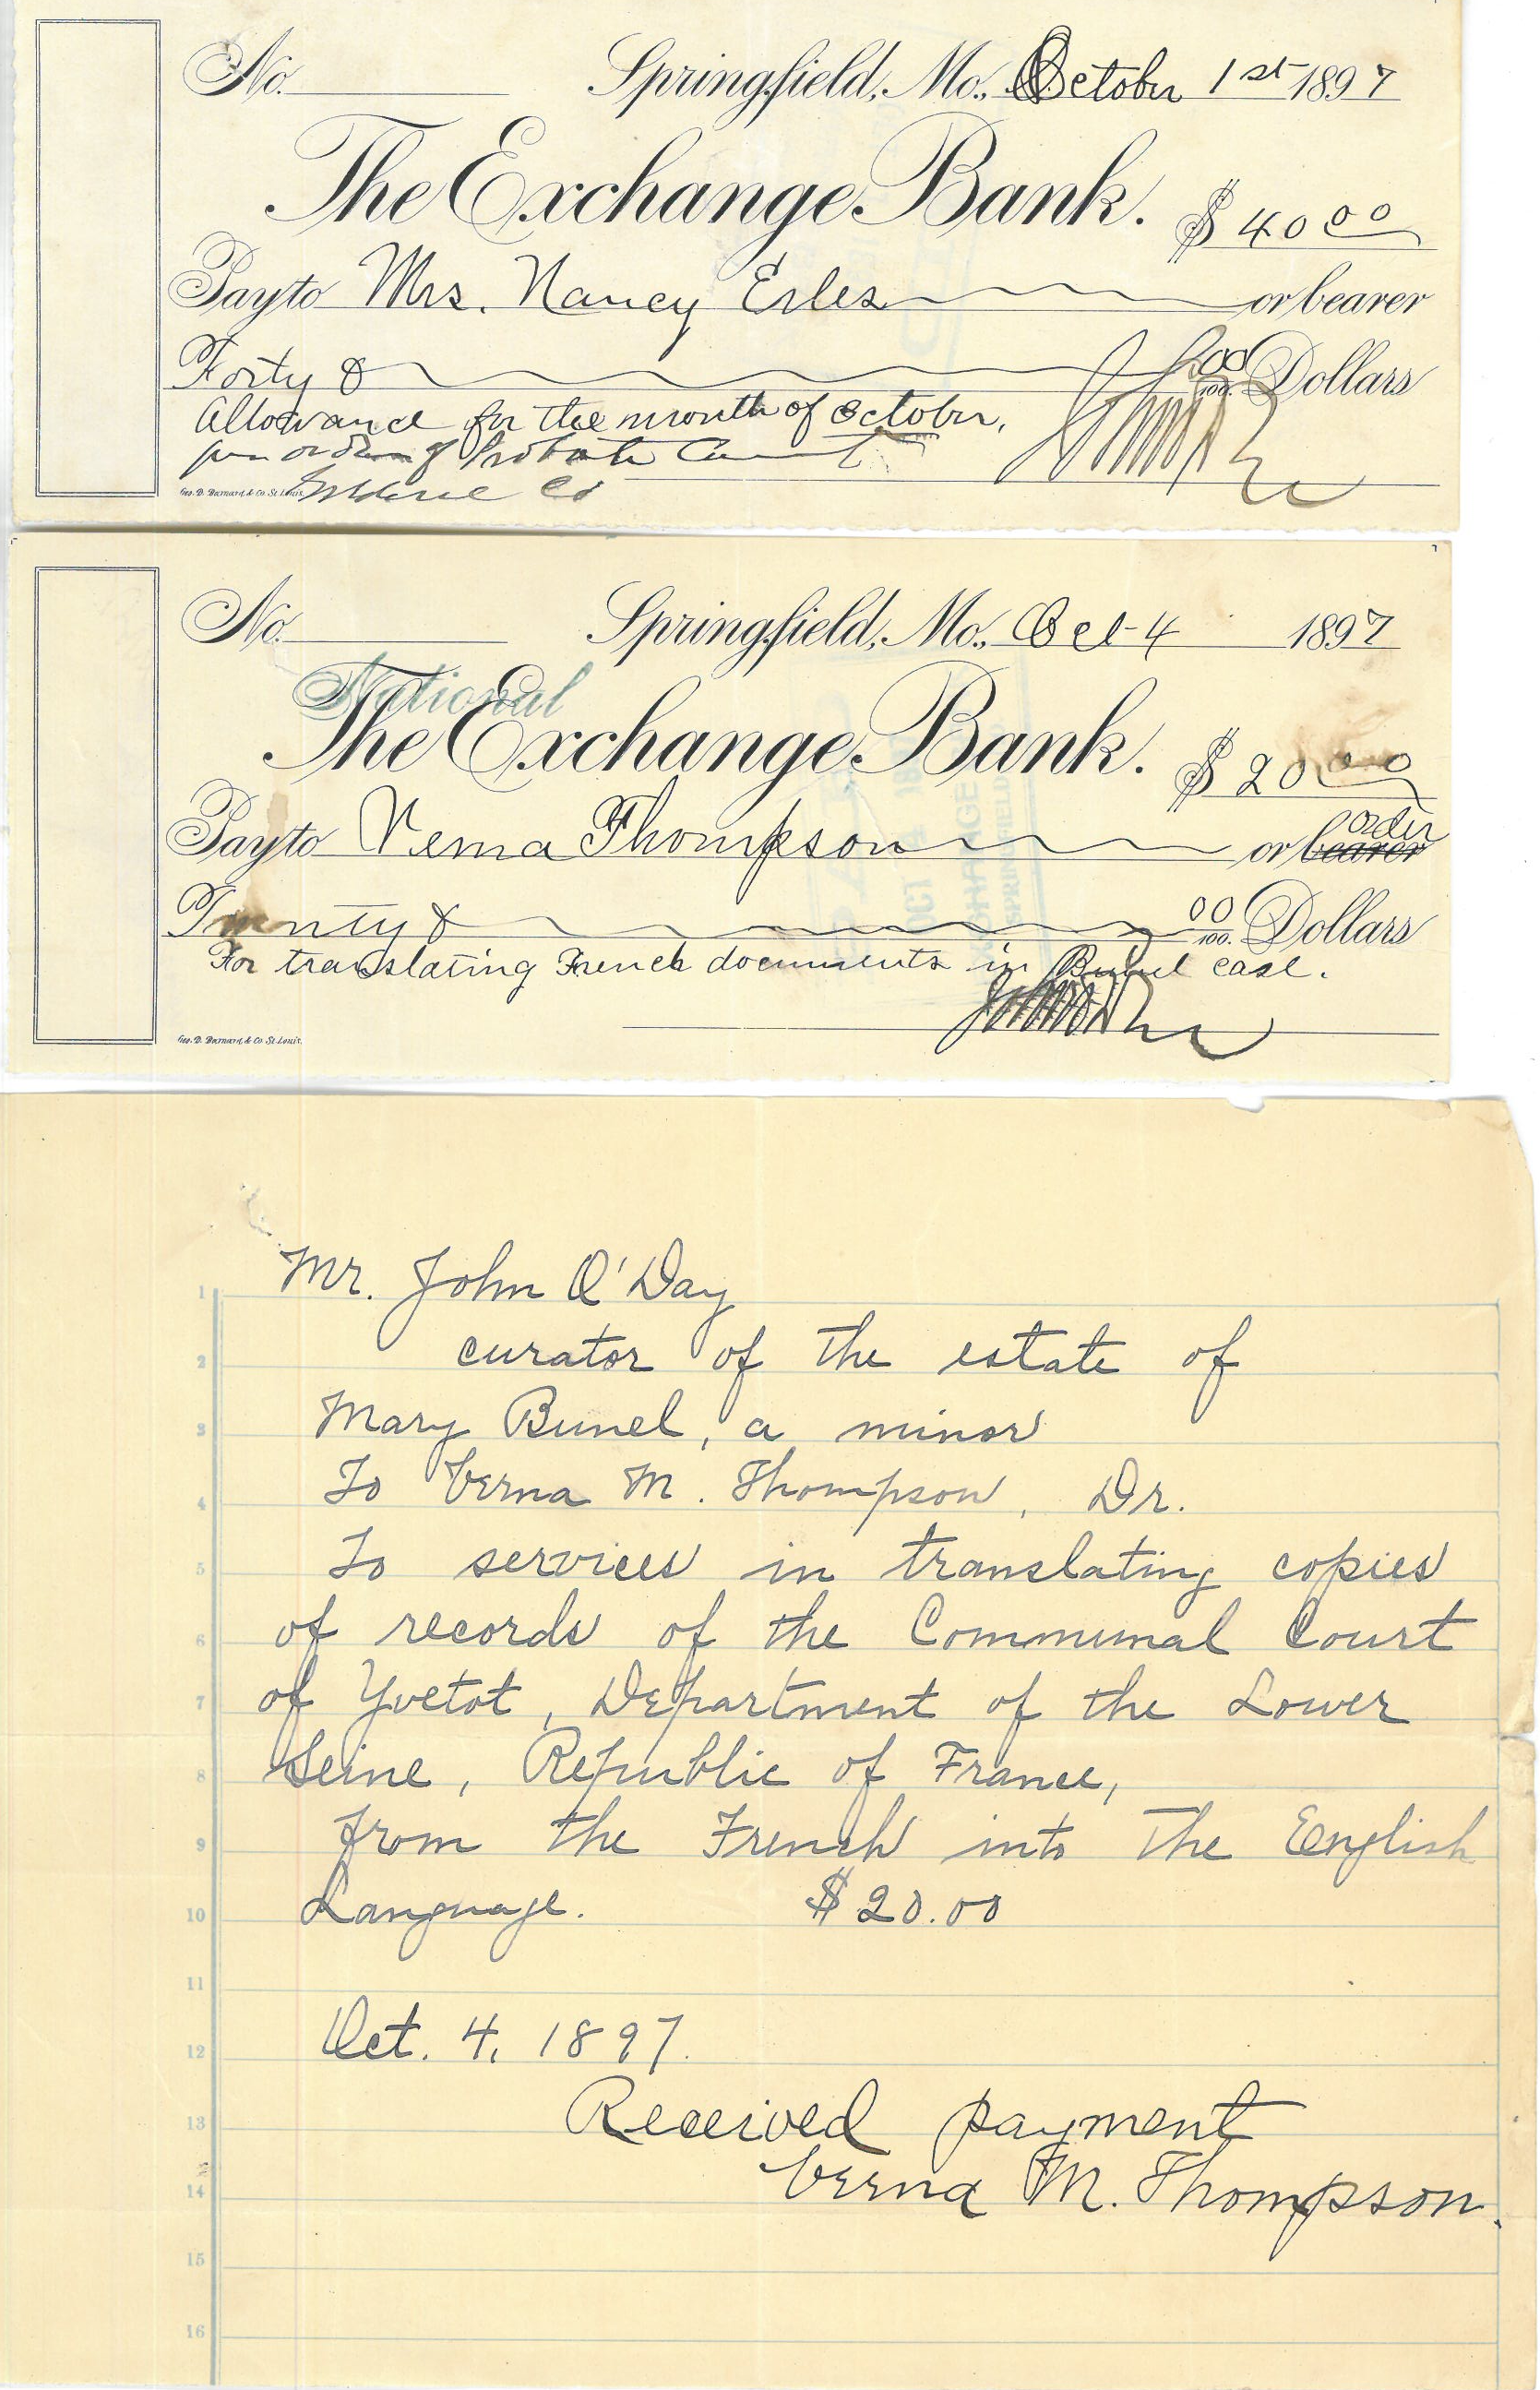 No. Springfield, Mo., October 1st 1897
The Exchange Bank. $ 40 00
Pay to Mrs. Nancy Erles or bearer
Forty & 00/100 Dollars
Allowance for the month of October,
per order of Probate Court
Geo. D. Barnard & Co. St. Louis. Co
No. Springfield, Mo., Oct 4 1897
National
The Exchange Bank. $ 20 00
order
Pay to Verna Thompson or bearer
Twenty & 00/100 Dollars
For translating French documents in Bunel case.
Geo. D. Barnard & Co. St. Louis.
Mr. John O'Day
1
2 curator of the estate of
3 Mary Bunel, a minor
4 To Verna M. Thompson, Dr.
5 To services in translating copies
6 of records of the Communal Court
7 of Yvetot, Department of the Lower
8 Seine, Republic of France,
9 from the French into the English
10 Language. $20.00
11
12 Oct. 4, 1897.
13 Received payment
14 Verna M. Thompson.
15
16